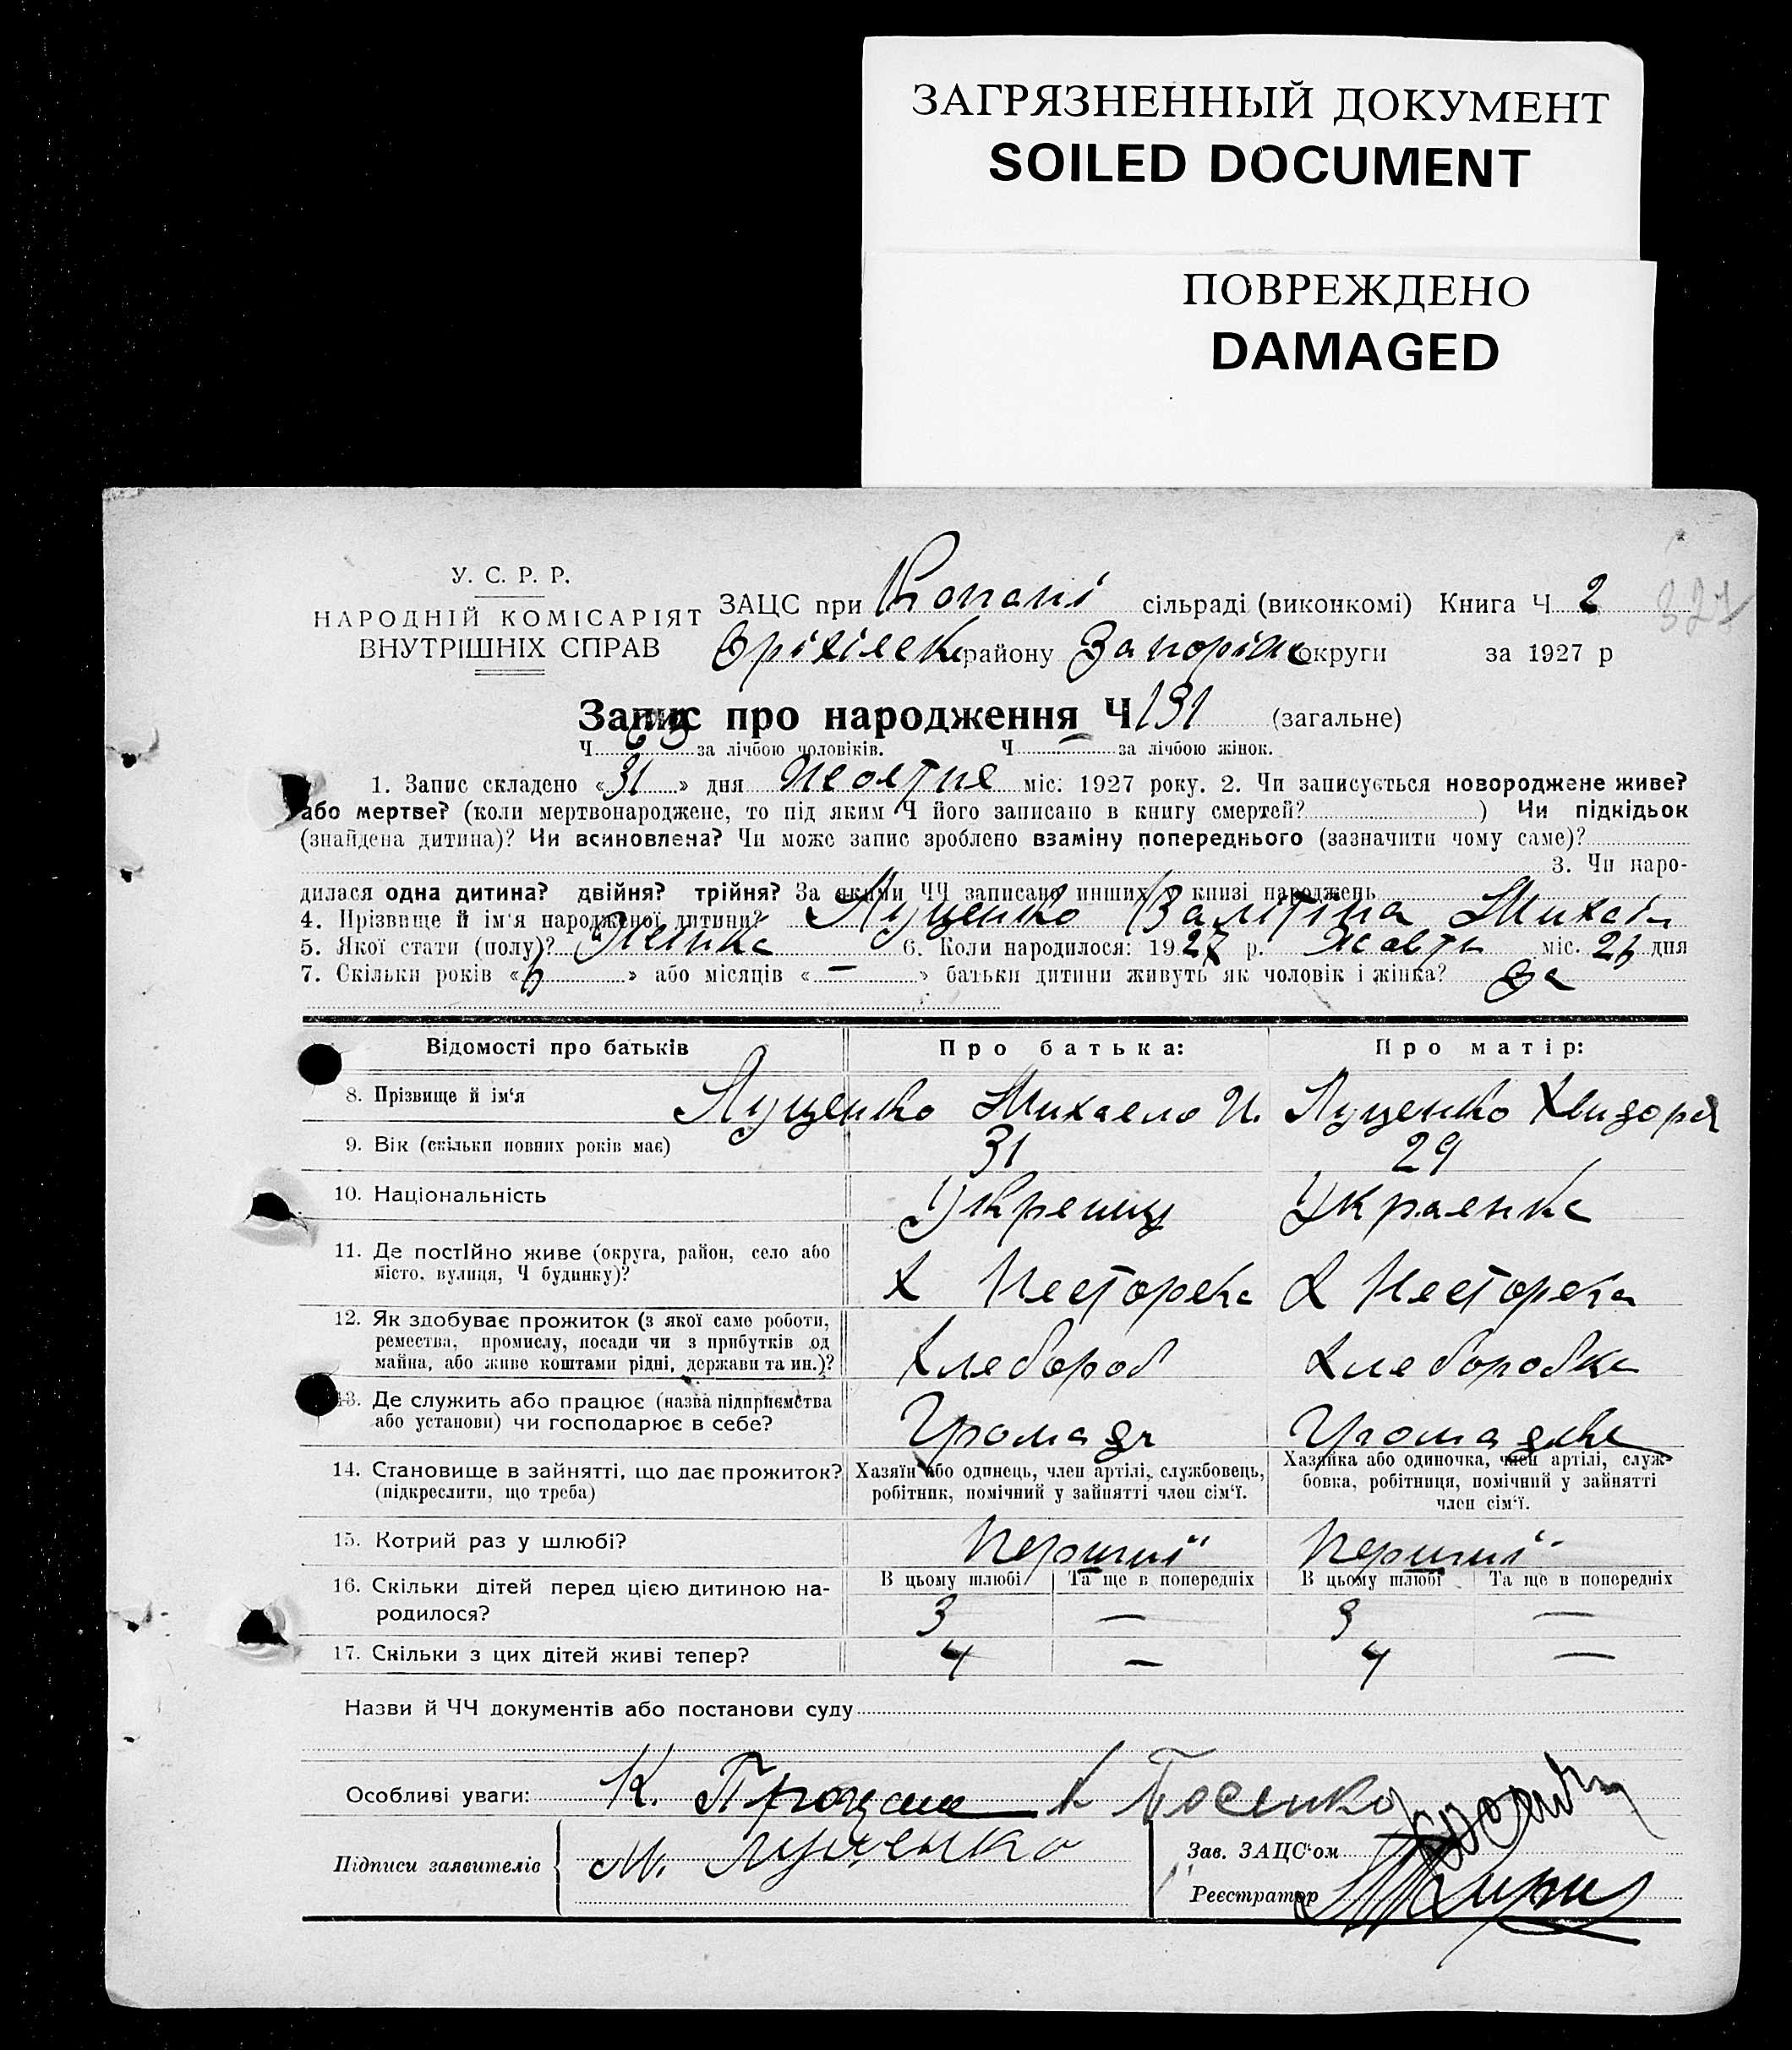 ЗАГРЯЗНЕННЫЙ ДОКУМЕНТ
SOILED DOCUMENT
ПОВРЕЖДЕНО
DAMAGED
У. С. Р. Р.
НАРОДНІЙ КОМІСАРІЯТ
ВНУТРІШНІХ СПРАВ
ЗАЦС при Копані сільраді (виконкомі) Книга Ч 2 327
Оріхівськ району Запоріж округи за 1927 р
Запис про народження Ч 131 (загальне)
Ч 63 за лічбою чоловіків. Ч — за лічбою жінок.
1. Запис складено «31» дня Жовтня міс: 1927 року. 2. Чи записується новороджене живе?
або мертве? (коли мертвонароджене, то під яким Ч його записано в книгу смертей? ) Чи підкідьок
(знайдена дитина)? Чи всиновлена? Чи може запис зроблено взаміну попереднього (зазначити чому саме)?
3. Чи наро-
дилася одна дитина? двійня? трійня? За якими ЧЧ записано инших у книзі народжень
4. Прізвище й ім'я народженої дитини? Луценко
5. Якої статі (полу)? 6. Коли народилося: 1927 р. Жовтн міс. 26 дня
7. Скільки років «6» або місяців «—» батьки дитини живуть як чоловік і жінка? да
Відомості про батьків Про батька: Про матір:
8. Прізвище й ім'я Луценко Михаело И. Луценко Хвидора
9. Вік (скільки повних років має) 31 29
10. Національність Украенка
11. Де постійно живе (округа, район, село або
місто, вулиця, Ч будинку)? Х Несторека Х Несторека
12. Як здобуває прожиток (з якої саме роботи,
ремества, промислу, посади чи з прибутків од
майна, або живе коштами рідні, держави та ин.)? Хлебороб Хлеборобка
13. Де служить або працює (назва підприємства
або установи) чи господарює в себе?
14. Становище в зайнятті, що дає прожиток?
(підкреслити, що треба)
Хазяїн або одинець, член артілі, службовець,
робітник, помічний у зайнятті член сім'ї.
Хазяйка або одиночка, член артілі, служ-
бовка, робітниця, помічний у зайнятті
член сім'ї.
15. Котрий раз у шлюбі? Перший Перший
16. Скільки дітей перед цією дитиною на-
родилося?
В цьому шлюбі Та ще в попередніх В цьому шлюбі Та ще в попередніх
3 — 3 —
17. Скільки з цих дітей живі тепер? 4 — 4 —
Назви й ЧЧ документів або постанови суду
Особливі уваги: К.
Підписи заявителів М. Луценко
Зав. ЗАЦС'ом
Реєстратор